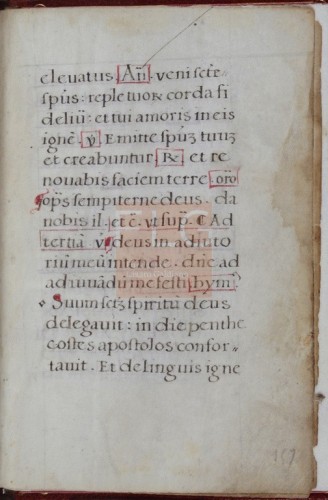 eleuatus. Añ. veni scte
spūs: reple tuoꝝ corda fi
deliū: et tui amoris in eis
ignē. ℣ Emitte spūz tuuz
et creabuntur. ℟. et re
nouabis faciem terre oro
opṡ sempiterne deus. da
nobis il. et ē. vt sup. ¶ Ad
tertiā ℣ deus in adiuto
riū meū intende. dne ad
adiuuādū me festi hym
Suum sctz spiritū deus
delegauit: in die penthe
costes apostolos confor
tauit. Et de linguis igne
157